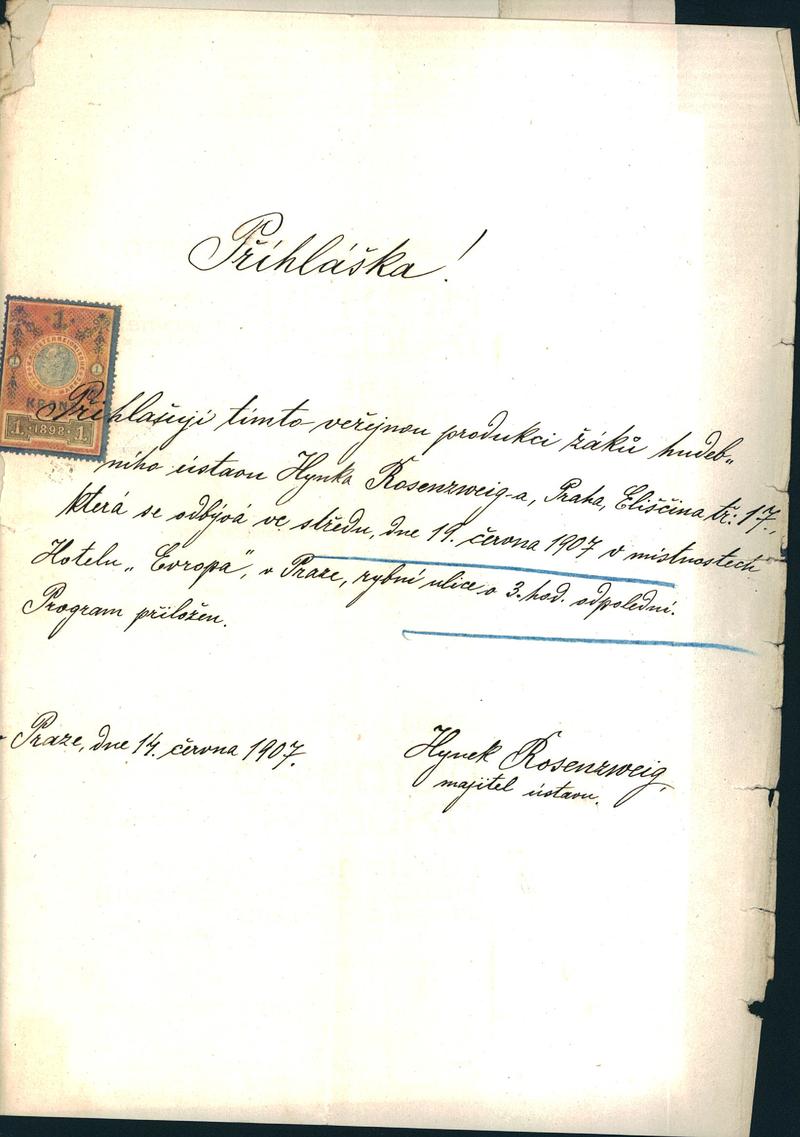 Příhláška!
1
KRONE
1 · 1898 · 1
Příhlašuji tímto veřejnou produkci žáků hudeb„
ního ústavu Hynka Rosenzweig-a, Praha, Eliščina tř. 17.,
která se odbývá ve středu, dne 19. června 1907 v místnostech
Hotelu „Evropa", v Praze, rybní ulice o 3. hod. odpolední.
Program přiložen.
Praze, dne 14. června 1907.
Hynek Rosenzweig,
majitel ústavu.